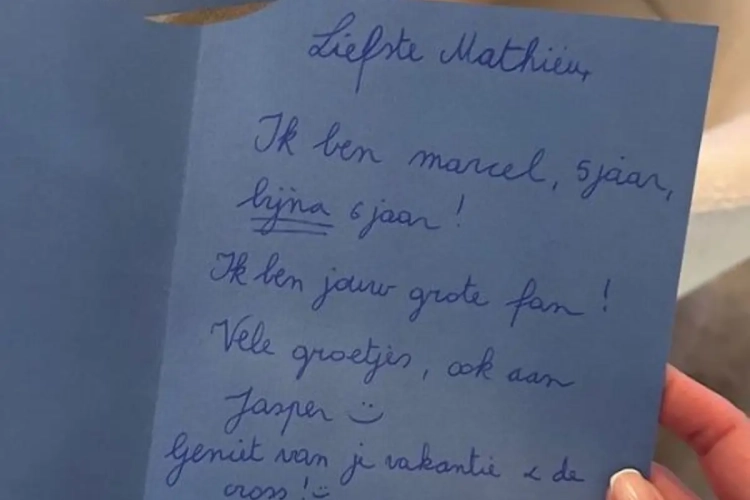 Liefste Mathieu,
Ik ben marcel, 5 jaar,
bijna 6 jaar!
Ik ben jouw grote fan!
Vele groetjes, ook aan
Jasper :)
Geniet van je vakantie & de
cross! :)